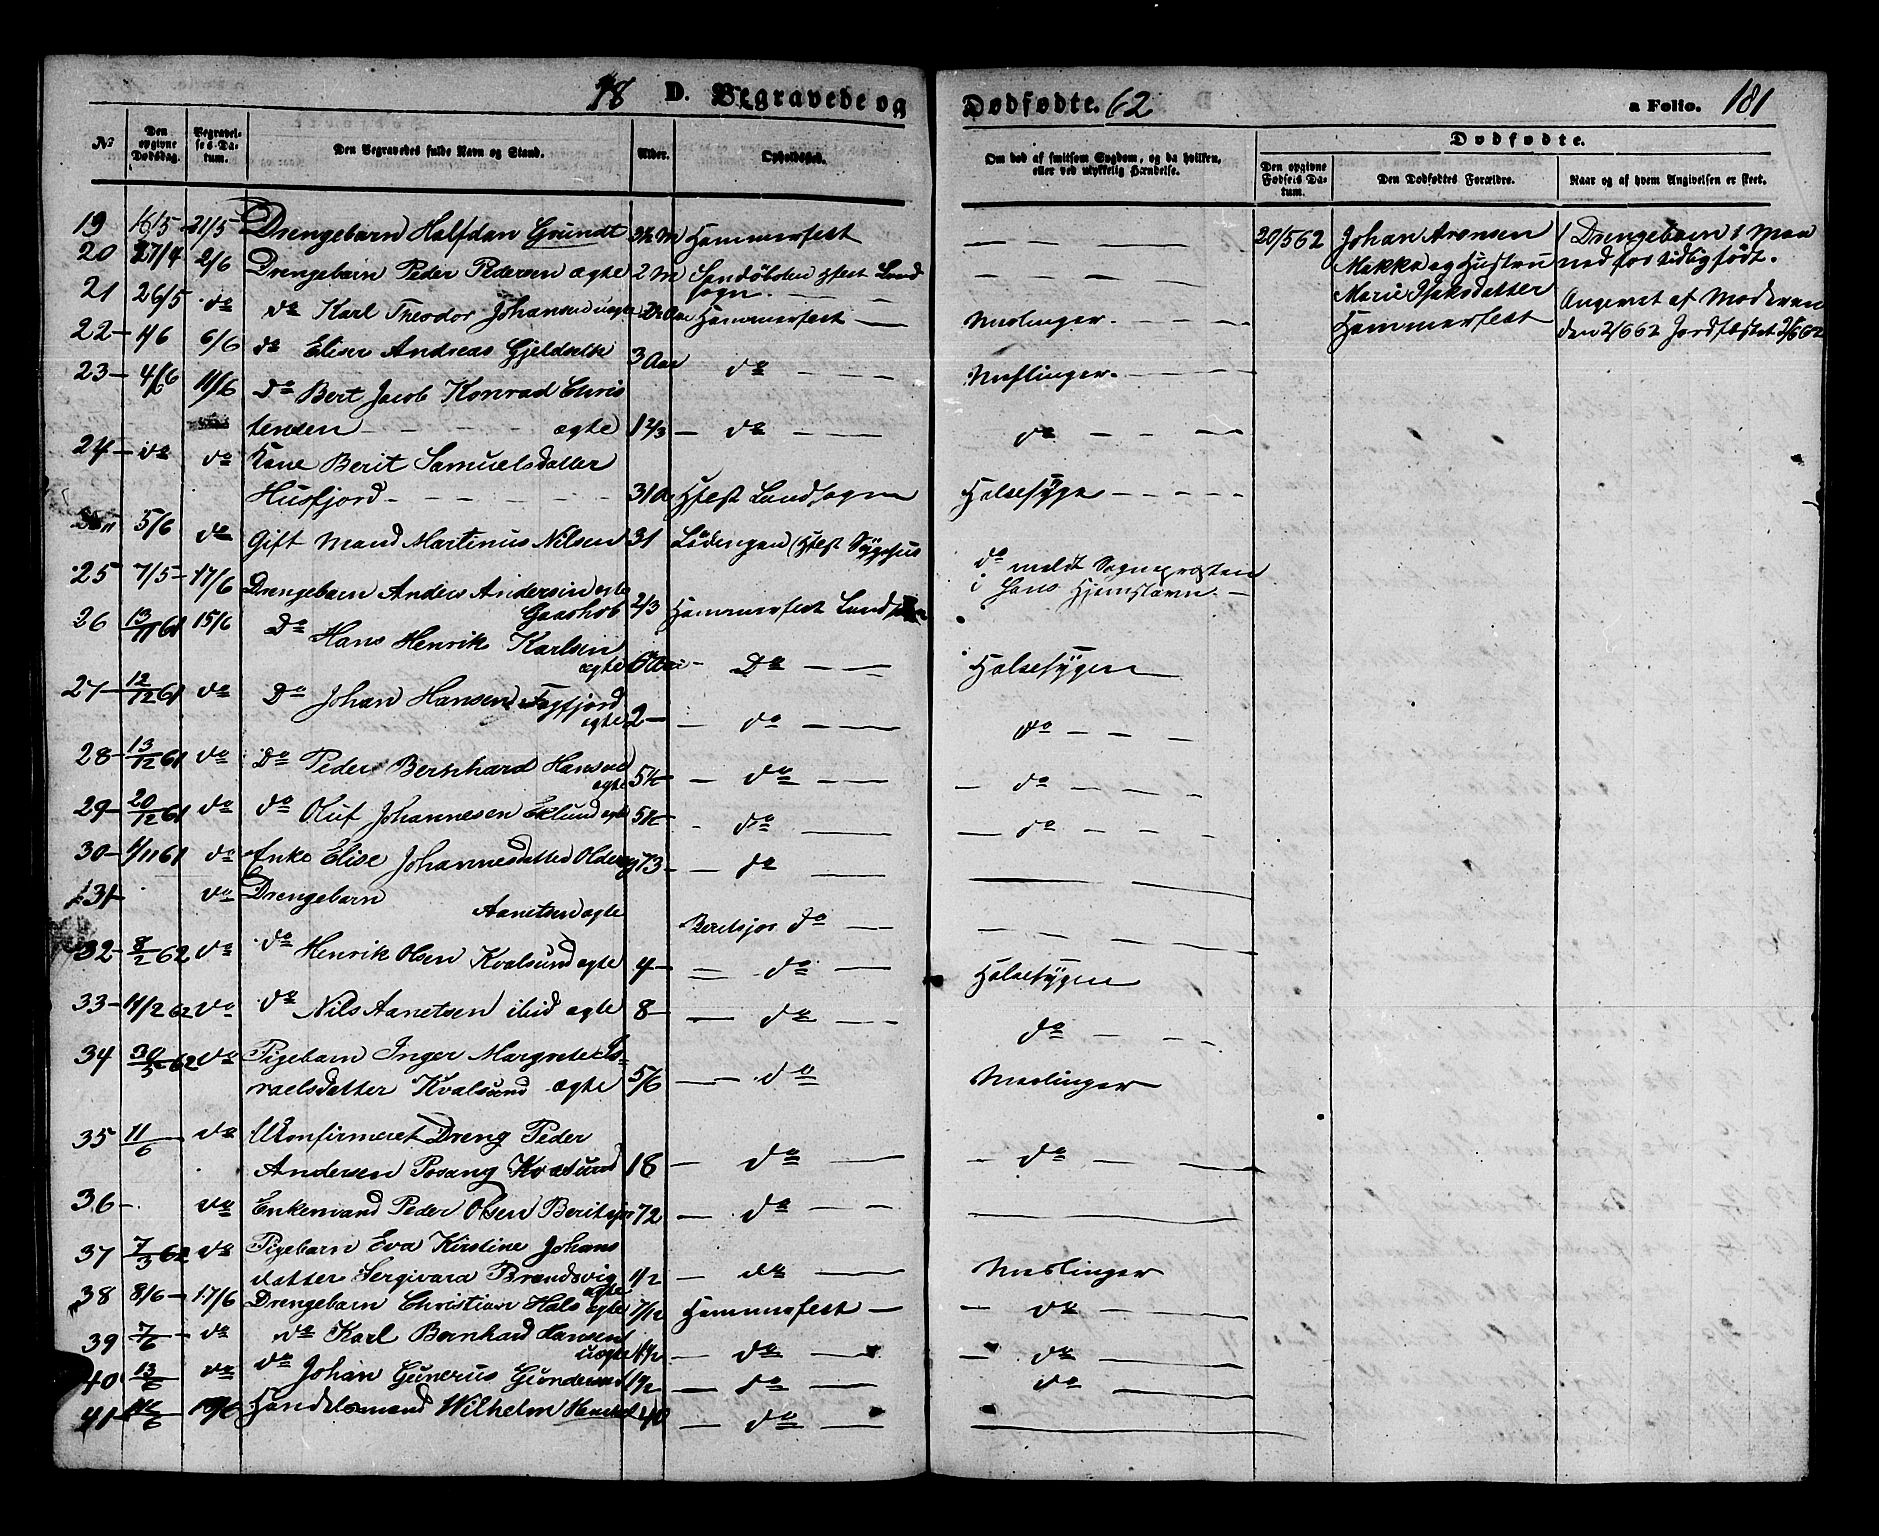 18 D. Begravede og Dødfødte. 62 a Folio. 181
No
Den opgivne Dødsdag.
Begravelses-Datum.
Den Begravedes fulde Navn og Stand.
Alder.
Opholdssted.
Om død af smitsom Sygdom, og da hvilken, eller ved ulykkelig Hændelse.
Dødfødte.
Den opgivne Fødsels Datum.
Den Dødfødtes Forældre.
Naar og af hvem Angivelsen er skeet.
19 16/5 21/5 Drengebarn Halfdan Grundt 2½ M Hammerfest
20 27/4 2/6 Drengebarn Peder Pedersen ægte 2 M Hfest Land
sogn.
21 26/5 do do Karl Theodor Johansen uægte Hammerfest Meslinger.
22 4/6 6/6 do Eliser Andreas Gjeldseth 3 Aar do Meslinger.
23 4/6 11/6 do Bert Jacob Konrad Chris
tensen ægte 1 2/3 do do
24 do do Kone Berit Samuelsdatter
Husfjord 31 Hfest Landsogn Halsesyge
5/6 do Gift Mand Martinus Nilsen 31 Lødingen (Hfest Sygehus
do meldt Sognepræsten
i Hans Hjemstavn.
25 7/5 17/6 Drengebarn Anders Andersen ægte
Gaashob 2/3 Hammerfest Lands
26 13/11 61 15/6 Do Hans Henrik Karlsen
ægte 6 Do Halsesygen
27 12/12 61 do Do Johan Hansen Fægfjord
ægte 2 do do
28 13/12 61 do Do Peder Bernhard Hansen
ægte 5½ do do
29 20/12 61 do do Oluf Johannesen Eklund ægte 5½ do do
30 4/11 61 do Enke Elise Johannesdatter 73 do
31 do Drengebarn
Aanetsen ægte Beritsjor do
32 8/2 62 do do Henrik Olsen Kvalsund ægte 4 do Halsesygen
33 11/2 62 do do Nils Aanetsen ibid ægte 8 do do
34 30/5 62 do Pigebarn Inger Margrete Is-
raelsdatter Kvalsund ægte 5/6 do Meslinger
35 11/6 do Ukonfirmeret Dreng Peder
Andersen Porsang Kvalsund 18 do do
36 do Enkemand Peder Olsen Beritsjor 72 do
37 7/3 62 do Pigebarn Eva Kirstine Johans
datter Sergivara Brandsvig
ægte 1/2 do Meslinger
38 8/6 17/6 Drengebarn Christian Hals ægte 7/12 Hammerfest do
39 7/6 do do Karl Bernhard Hansen
uægte 1½ do do
40 13/6 do do Johan Gunerus Gundersen 1½ do do
41 Handelsmand Wilhelm 40 do
20/5 62 Johan Aronsen
Makka og Hustru
Marie Isaksdatter
Hammerfest
1 Drengebarn 1 Maa
ned for tidlig født.
Angivet af Moderen
den 2/6 62 Jordfæstet 2/6 62